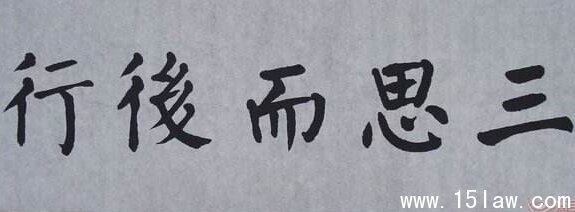 三思而後行
www.15law.com